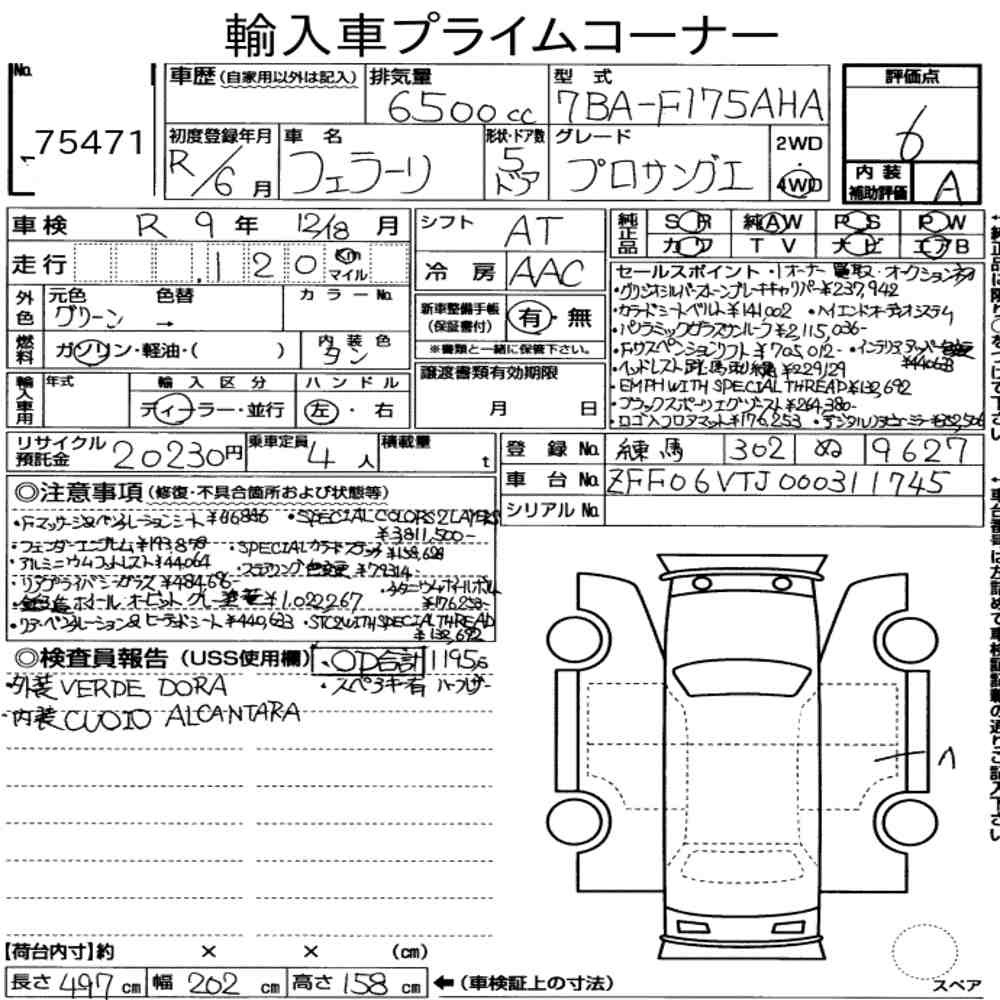 輸入車プライムコーナー
No. 75471
車歴(自家用以外は記入) 排気量 6500cc 型式 7BA-F175AHA 評価点 6
初度登録年月 R /6月 車名 フェラーリ 形状・ドア数 5ドア グレード プロサングエ 2WD・4WD 内装補助評価 A
車検 R 9年 12/18月 シフト AT 純正品 SR 純AW PS PW
走行 120 km マイル 冷房 AAC カワ TV ナビ エアB
外色 元色 グリーン → 色替 カラーNo. 新車整備手帳(保証書付) 有・無
※書類と一緒に保管下さい。
燃料 ガソリン・軽油・( ) 内装色 タン
輸入車用 年式 輸入区分 ディーラー・並行 ハンドル 左・右 譲渡書類有効期限 月 日
セールスポイント・1オーナー 買取・オークション
・グリジオシルバーストーンブレーキキャリパー¥237,942
・カラードシートベルト¥141,002 ・Hiエンドオーディオシステム
・パノラミックガラスサンルーフ¥2,115,036-
・Fサスペンションリフト¥705,012-
¥440,633
・ヘッドレスト跳馬刺繍¥229,129
・EMPH WITH SPECIAL THREAD¥132,692
・ブラックスポーツエグゾースト¥264,380-
・ロゴ入フロアマット¥176,253
リサイクル預託金 20230円 乗車定員 4人 積載量 t 登録No. 練馬 302 ぬ 9627
車台No. ZFF06VTJ000311745
シリアルNo.
◎注意事項(修復・不具合箇所および状態等)
・Fマッサージ&ベンチレーションシート ・SPECIAL COLORS 2 LAYERS
¥3,811,500-
・フェンダーエンブレム¥193,878 ・SPECIALカラードステッチ¥158,628
・アルミニウムフットレスト¥44,064 ・ステアリング色変更¥79,314-
・リアプライバシーガラス ・チタニウムホイールボルト
¥176,253-
ホイールオービットグレー塗装¥1,022,267
・リアベンチレーション&ヒーテッドシート¥440,633 ・STC2 WITH SPECIAL THREAD
¥132,692
◎検査員報告(USS使用欄) ・OP合計 1195
・外装 VERDE DORA ・スペアキー有
・内装 CUOIO ALCANTARA
【荷台内寸】約 × × (cm)
長さ 497cm 幅 202cm 高さ 158cm ←(車検証上の寸法)
スペア